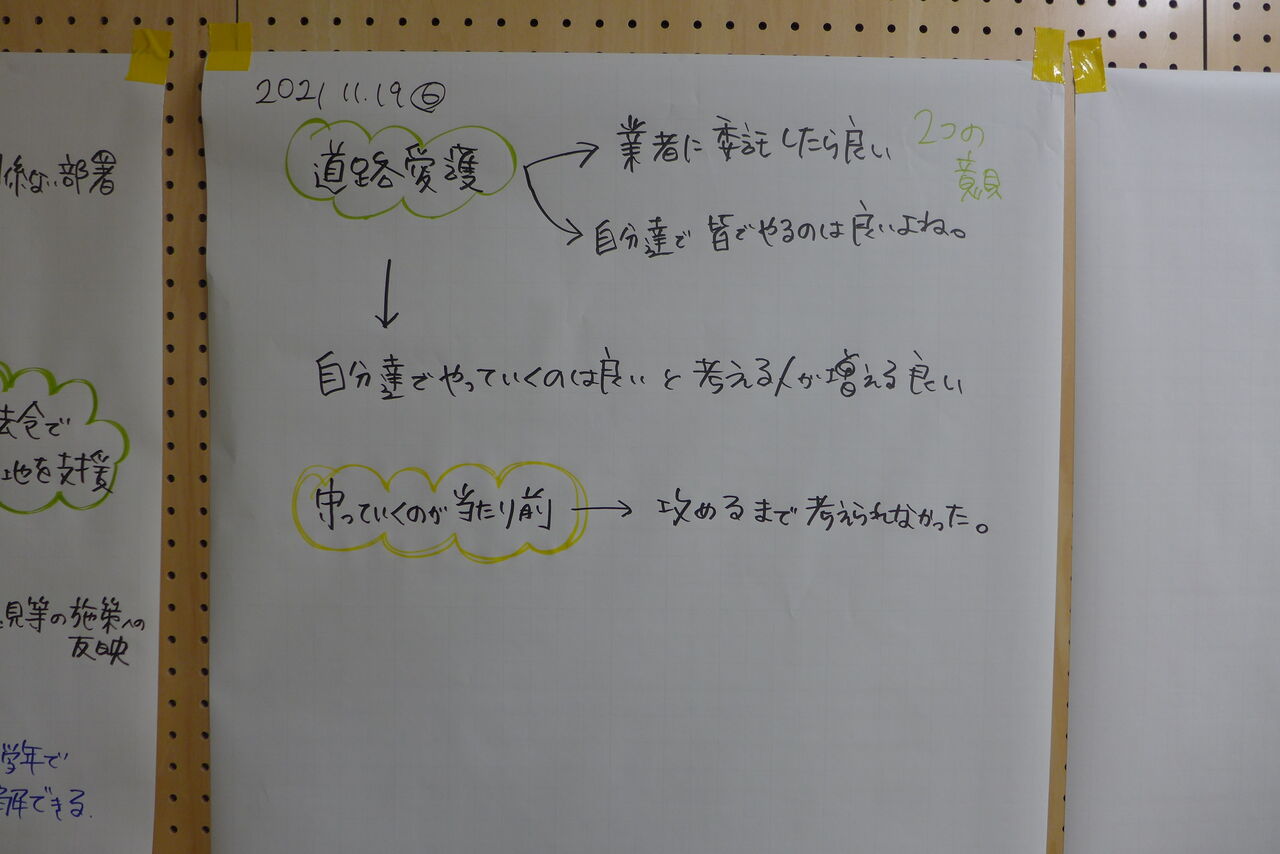 2021 11.19 ⑥
道路愛護
業者に委託したら良い
自分達で皆でやるのは良いよね。
2つの
意見
自分達でやっていくのは良いと考える人が増える良い
守っていくのが当たり前
攻めるまで考えられなかった。
係ない部署
法令で
地を支援
見等の施策への
反映
学年で
解できる.